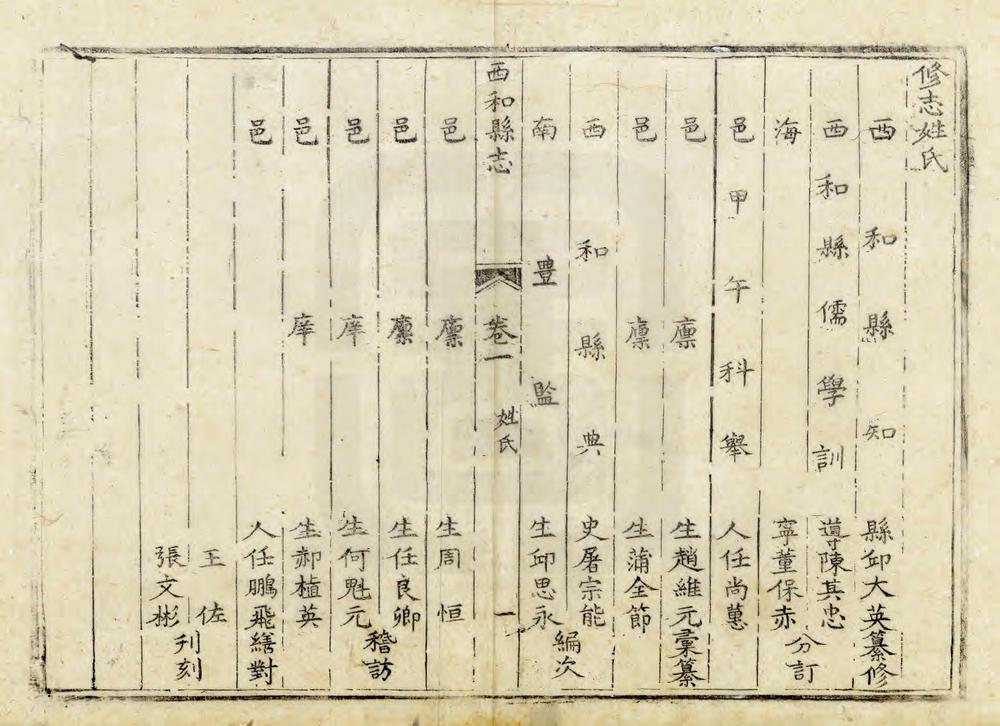 修志姓氏
西和縣知縣邱大英纂修
西和縣儒學訓導陳其忠
海寧董保赤
分訂
邑甲午科舉人任尚蕙
邑廩生趙維元彙纂
邑廩生蒲全節
西和縣典史屠宗能
南豊監生邱思永
編次
西和縣志
卷一
姓氏
一
邑廩生周恒
邑廩生任良卿
邑庠生何魁元
稽訪
邑庠生郝植英
邑人任鵬飛繕對
王佐
張文彬
刋刻